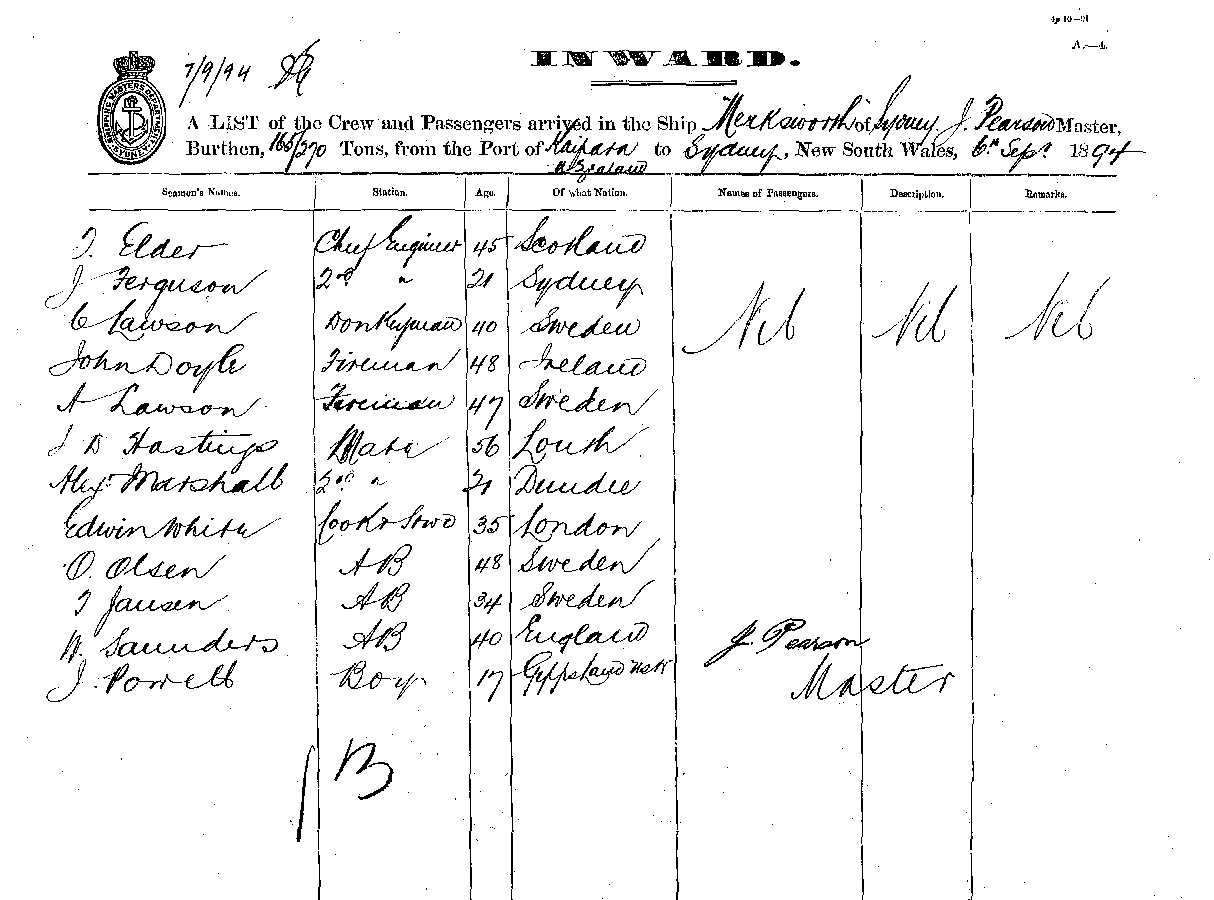 4p 10-91
A.—4.
7/9/94
INWARD.
SHIPPING MASTERS DEPARTMENT SYDNEY
A LIST of the Crew and Passengers arrived in the Ship Merksworth of Sydney J. Pearson Master,
Burthen, 165/270 Tons, from the Port of Kaipara to Sydney, New South Wales, 6th Sepr 1894
N Zealand
Seamen's Names. Station. Age. Of what Nation. Names of Passengers. Description. Remarks.
T. Elder Chief Engineer 45 Scotland
J Ferguson 2nd " 21 Sydney
C Lawson Donkeyman 40 Sweden Nil Nil Nil
John Doyle Fireman 48 Ireland
A Lawson Fireman 47 Sweden
J D Hastings Mate 56 Louth
Alexr Marshall 2nd " 21 Dundee
Edwin White Cook & Stwd 35 London
O. Olsen AB 48 Sweden
T Jansen AB 34 Sweden
W. Saunders AB 40 England J. Pearson
J. Powell Boy 17 Gippsland Master
13